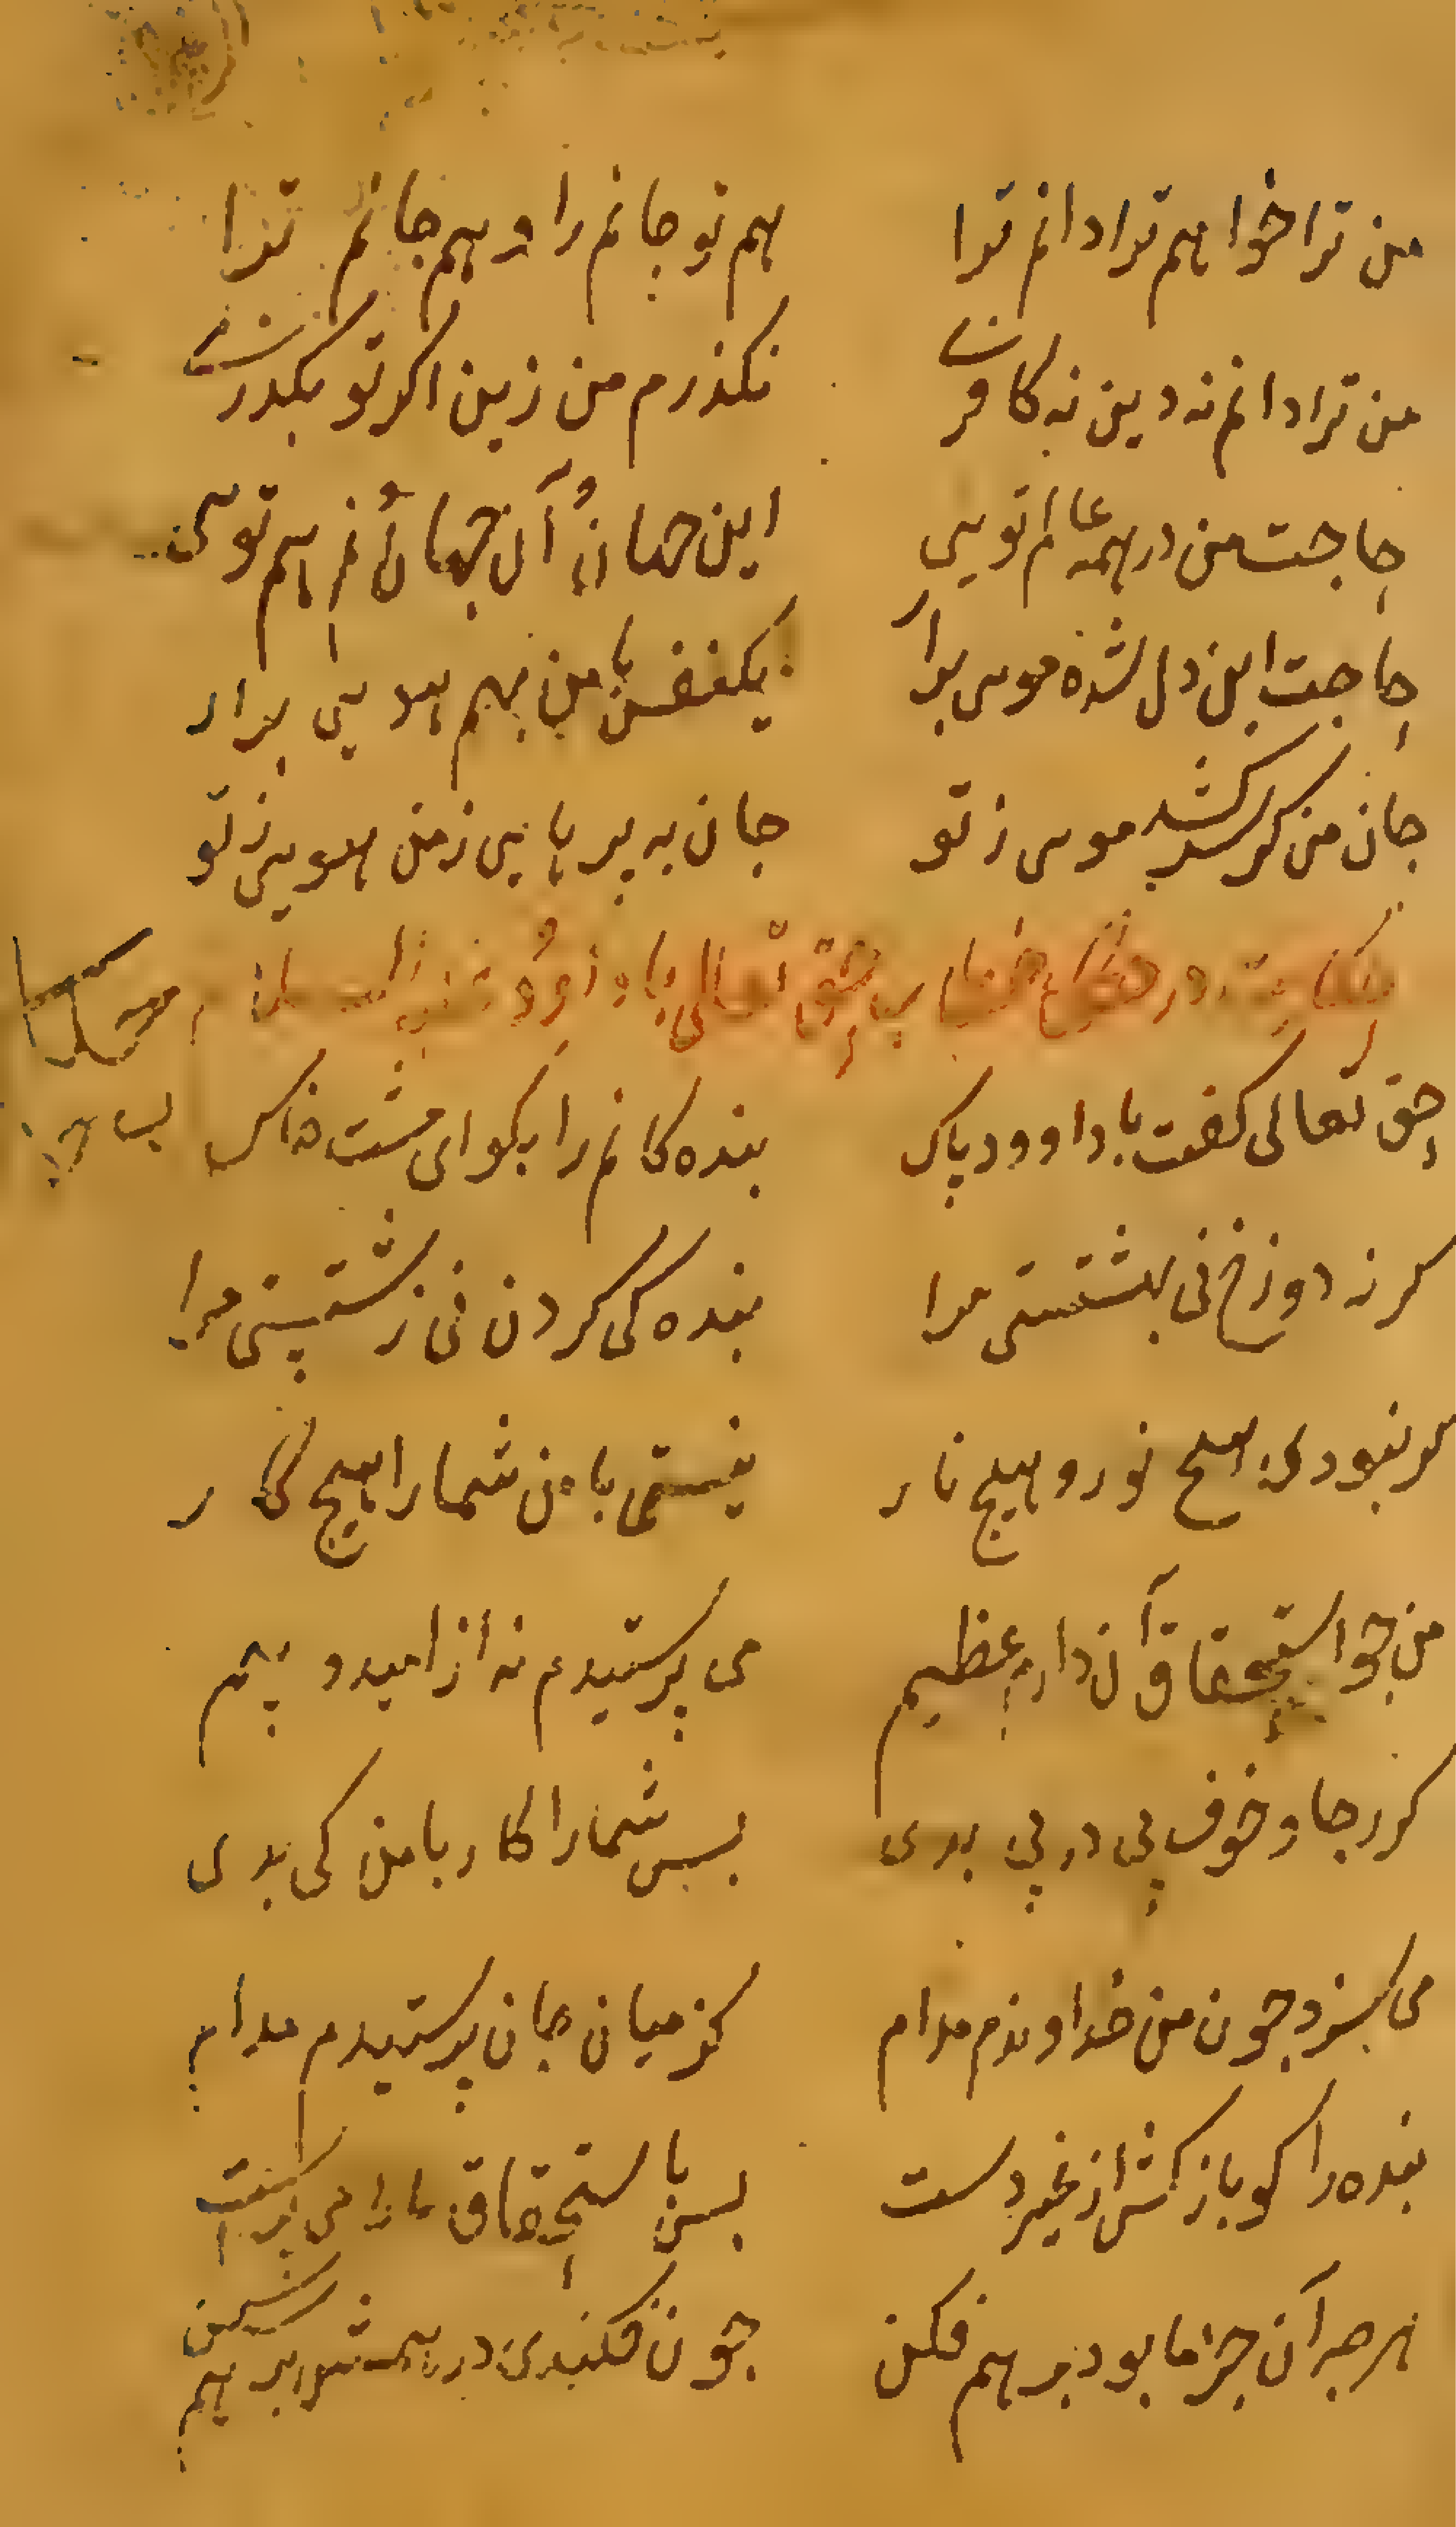 من ترا خواهم ترا دانم ترا هم تو جانم را و هم جانم ترا
من ترا دانم نه دین نه کافری نکذرم من زین اکر تو بکذری
حاجت من در همه عالم تویی این جهانم و آن جهانم هم تویی
حاجت این دل شده مویی برار یکنفس با من بهم هویی برار
جان من کر سر کشد مویی ز تو جان ببر هایی ز من هویی ز تو
حق تعالی کفت با داوود پاک بنده کانم را بکو ای مشت خاک
کر نه دوزخ نی بهشتستی مرا بنده کی کردن نی زشتستی مرا
کر نبودی هیچ نور و هیچ نار نیستی با من شما را هیچ کار
من جو استحقاق آن دارم عظیم می پرستیدم نه از امید و بیم
کر رجا و خوف پی در پی بدی بس شما را کار با من کی بدی
می سزد جون من خداوندم مدام کز میان جان پرستیدم مدام
بنده را کو باز کش از غیر دست بس باستحقاق ما را می پرست
هرجه آن جز ما بود برهم فکن جون فکندی درهمش برهم شکن